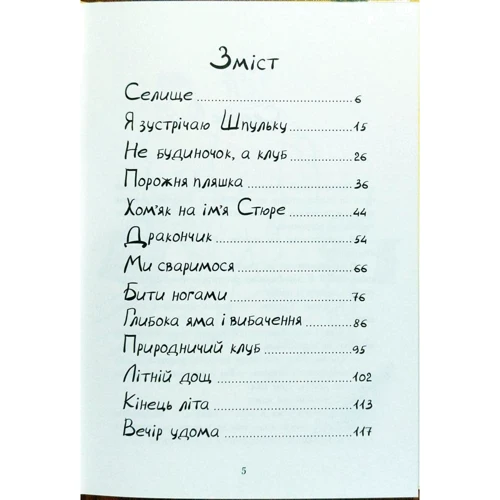 Зміст
Селище 6
Я зустрічаю Шпульку 15
Не будиночок, а клуб 26
Порожня пляшка 36
Хом'як на ім'я Стюре 44
Дракончик 54
Ми сваримося 66
Бити ногами 76
Глибока яма і вибачення 86
Природничий клуб 95
Літній дощ 102
Кінець літа 113
Вечір удома 117
5